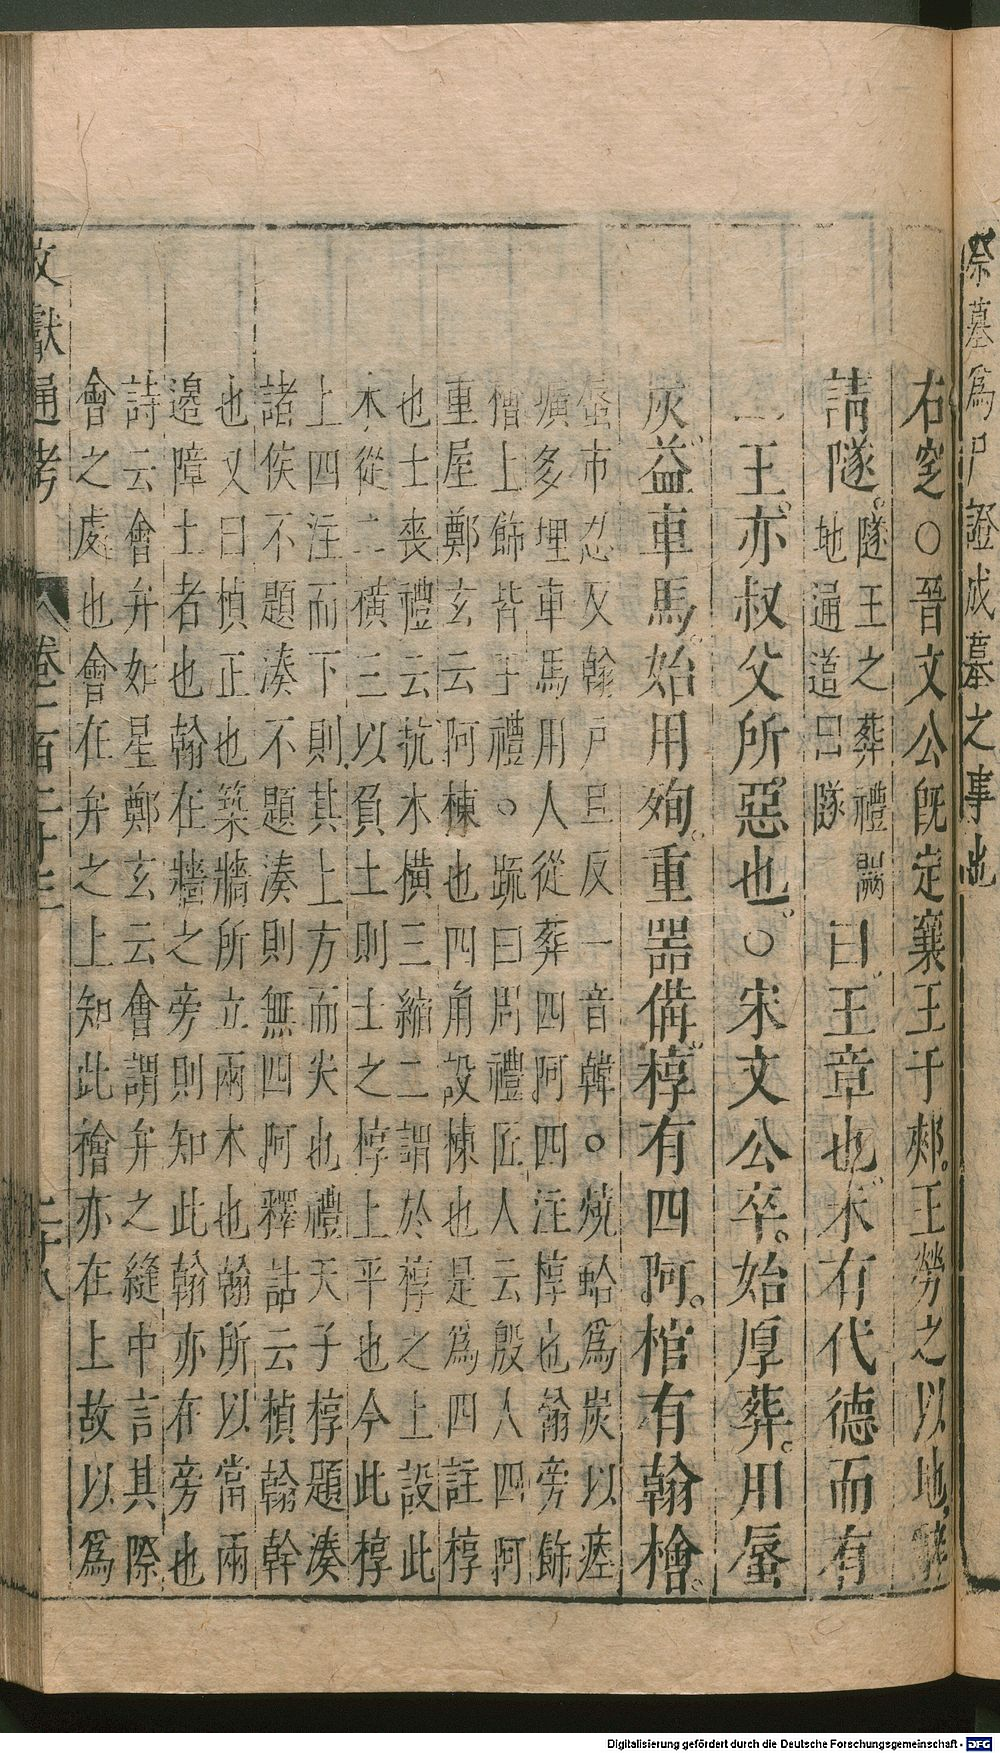 祭墓爲尸證成墓之事也
右窆○晉文公旣定襄王于郟。王勞之以地，辭
請隧。隧王之葬禮闕地通道曰隧曰王章也。未有代德而有
二王。亦叔父所惡也。○宋文公卒。始厚葬。用蜃
炭益車馬。始用殉。重噐備。椁有四阿。棺有翰檜。
蜃市忍反翰戸旦反一音韓。燒蛤爲炭以瘞
壙多埋車馬用人從葬四阿四注椁也翰旁飾
檜上飾皆王禮。疏曰周禮匠人云殷人四阿
重屋鄭玄云阿棟也四角設棟也是爲四註椁
也士喪禮云抗木横三縮二謂於椁之上設此
木從二横三以負土則士之椁上平也今此椁
上四注而下則其上方而尖也禮天子椁題湊
諸侯不題湊不題湊則無四阿釋詁云楨翰幹
也又曰楨正也築牆所立兩木也翰所以當兩
邊障土者也翰在牆之旁則知此翰亦在旁也
詩云會弁如星鄭玄云會謂弁之縫中言其際
會之處也會在弁之上知此檜亦在上故以爲
文獻通考 卷一百二十三 二十八
Digitalisierung gefördert durch die Deutsche Forschungsgemeinschaft - DFG